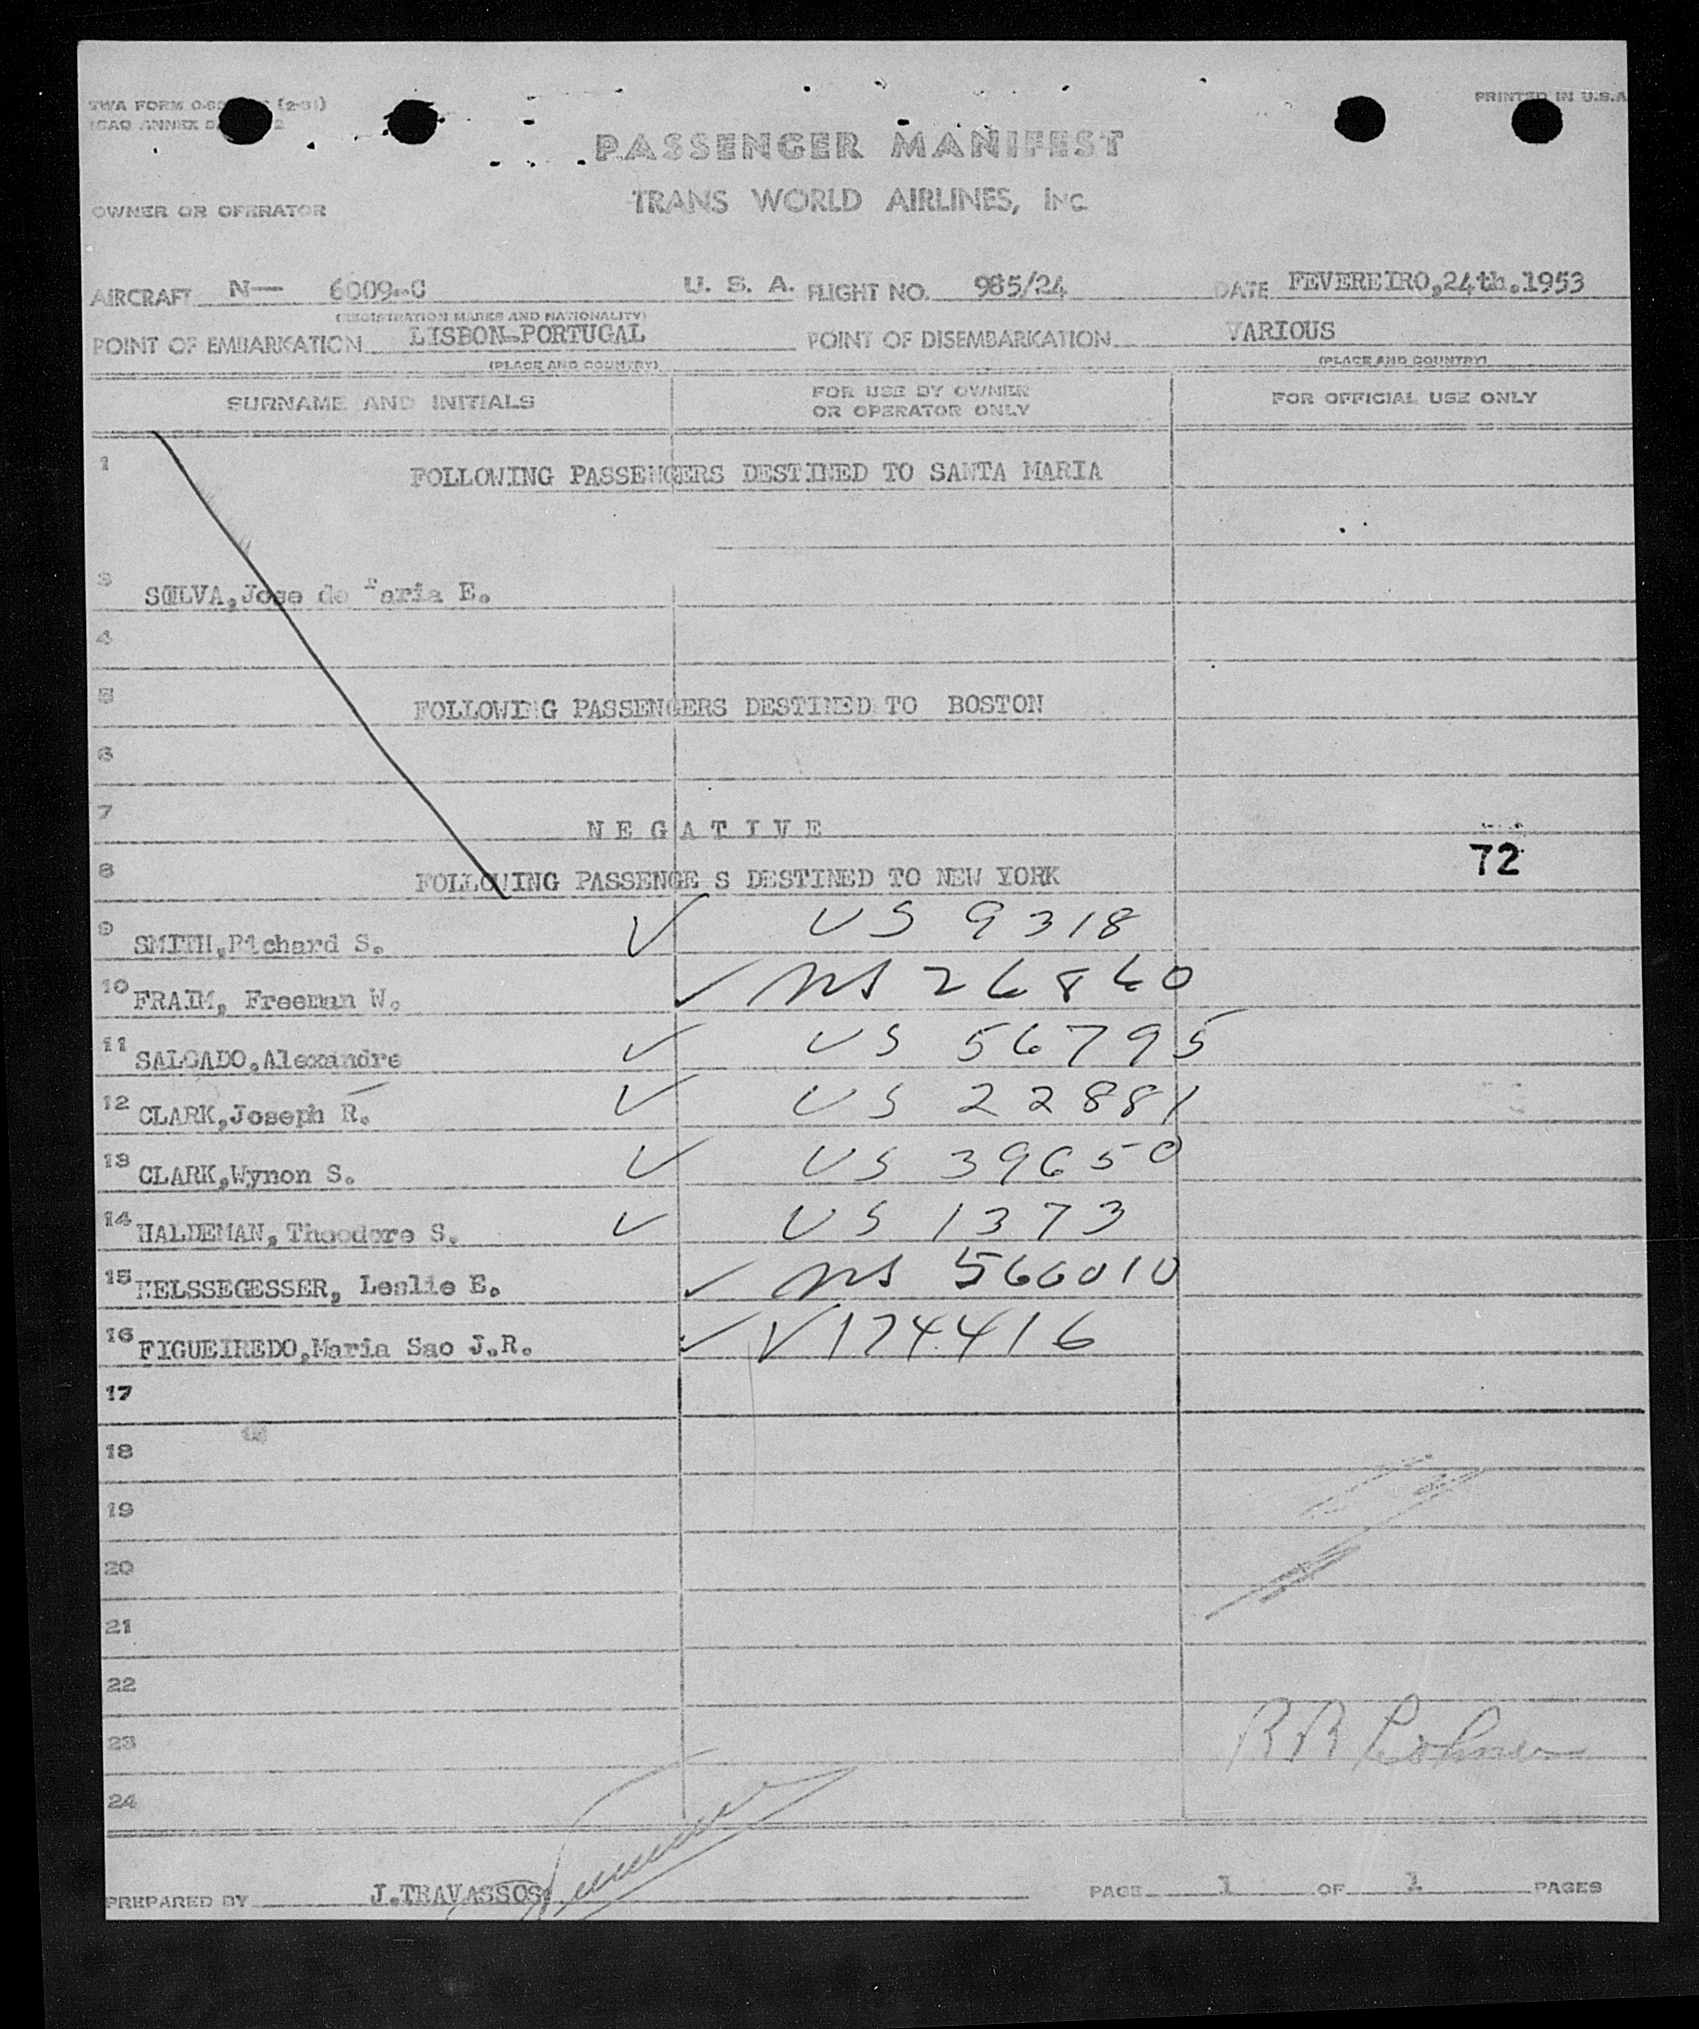 TWA FORM
(2-51)
PRINTED IN U.S.A
ICAO ANNEX
PASSENGER MANIFEST
TRANS WORLD AIRLINES, INC
OWNER OR OPERATOR
AIRCRAFT N— 6009-C U. S. A. FLIGHT NO. 985/24 DATE FEVEREIRO,24th.1953
(REGISTRATION MARKS AND NATIONALITY)
POINT OF EMBARKATION LISBON-PORTUGAL POINT OF DISEMBARKATION VARIOUS
(PLACE AND COUNTRY) (PLACE AND COUNTRY)
SURNAME AND INITIALS FOR USE BY OWNER OR OPERATOR ONLY FOR OFFICIAL USE ONLY
1 FOLLOWING PASSENGERS DESTINED TO SANTA MARIA
3 SILVA,Jose de Faria E.
4
5 FOLLOWING PASSENGERS DESTINED TO BOSTON
6
7 N E G A T I V E
72
8 FOLLOWING PASSENGE S DESTINED TO NEW YORK
9 SMITH,Richard S. US 9318
10 FRAIM, Freeman W. 26860
11 SALGADO,Alexandre US 56795
12 CLARK,Joseph R. US 22881
13 CLARK,Wynon S. US 39650
14 HALDEMAN, Theodore S. US 1373
15 Leslie E. 566010
16 FIGUEIREDO,Maria Sao J.R. V174416
17
18
19
20
21
22
23
24
PREPARED BY J.TRAVASSOS PAGE 1 OF 1 PAGES